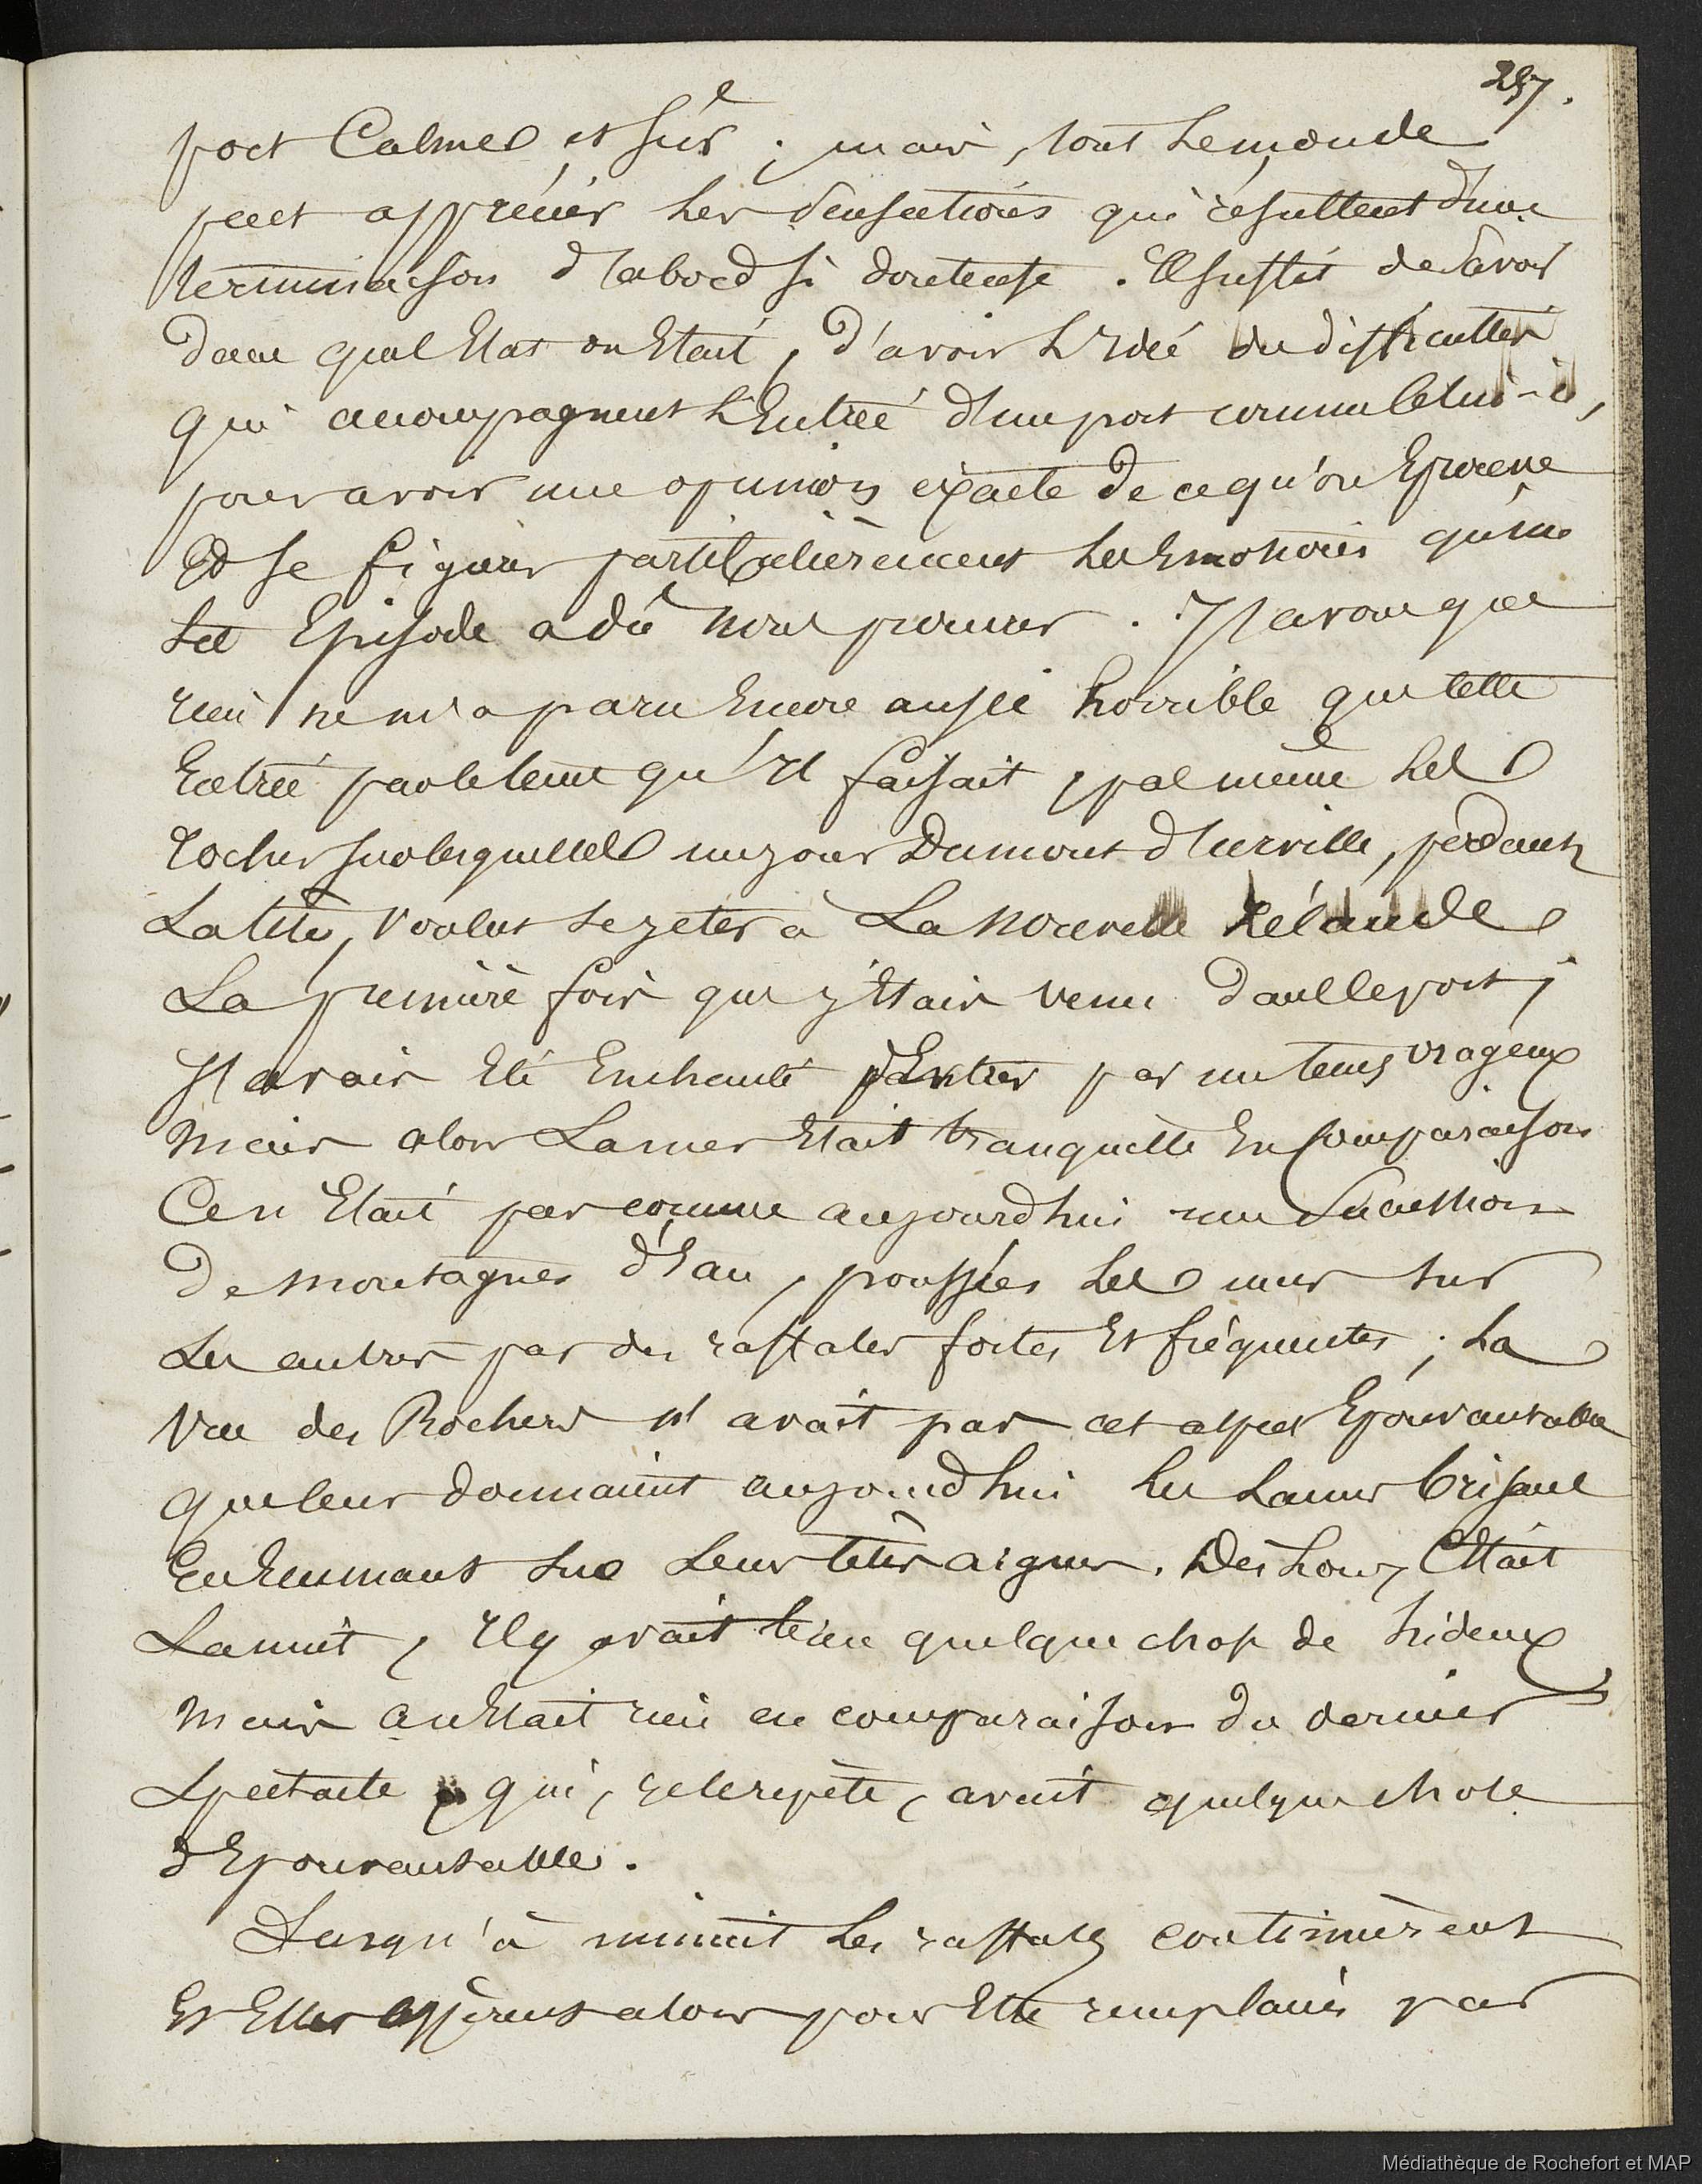 257.
port Calme et sûr ; mais, tout le monde
peut apprécier les sensations qui résultent d'une
terminaison d'abord si douteuse. Il suffit de savoir
dans quel Etat on Etait, d'avoir l'Idée des difficultés
qui accompagnent l'Entrée d'un port comme Celui-ci,
pour avoir une opinion exacte de ce qu'on Eprouve
Et se figurer particulièrement les Emotions qu'un
tel Episode a dû nous procurer. J'avoue que
rien ne m'a paru Encore aussi horrible que cette
Entrée par le tems qu'Il faisait, pas même les
rochers sur lesquelles un jour Dumont d'Urville, perdant
La tête, voulut se jeter à La Nouvelle Zélande
La première fois que j'Etais venu dans le port,
J'avais Eté Enchanté d'Entrer par un tems orageux
Mais alors La mer Etait tranquille En Comparaison
Ce n'Etait pas comme aujourd'hui une Succession
De montagnes d'Eau, poussées les unes sur
Les autres par des raffales fortes Et fréquentes ; La
Vue des Rochers n'avait pas cet aspect Epouvantable
que leur donnaient aujourd'hui les Lames brisant
En Ecumant sur Leurs têtes aigues. Dès lors, C'Etait
La nuit, Il y avait bien quelque chose de hideux
Mais ce n'Etait rien en comparaison du dernier
Spectacle qui, je le répète, avait quelque chose
d'Epouvantable.
Jusqu'à minuit Les raffales continuèrent
Et Elles cessèrent alors pour Etre remplacées par
Médiathèque de Rochefort et MAP